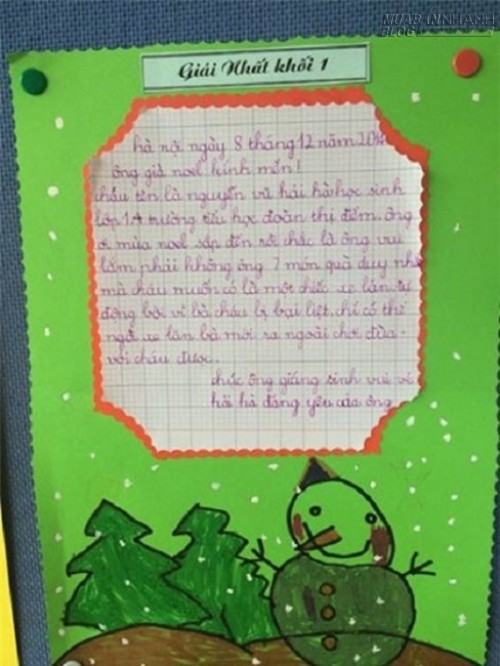 MUABANNHANH
BLOG
Giải Nhất khối 1
hà nội ngày 8 tháng 12 năm 2014
ông già noel kính mến!
cháu tên là nguyễn vũ hải hà học sinh
lớp 1A trường tiểu học đoàn thị điểm. ông
ơi mùa noel sắp đến rồi chắc là ông vui
lắm phải không ông ? món quà duy nhất
mà cháu muốn có là một chiếc xe lăn tự
động bởi vì bà cháu bị bại liệt. chỉ có thể
ngồi xe lăn bà mới ra ngoài chơi đùa
với cháu được.
chúc ông giáng sinh vui vẻ
hải hà đáng yêu của ông